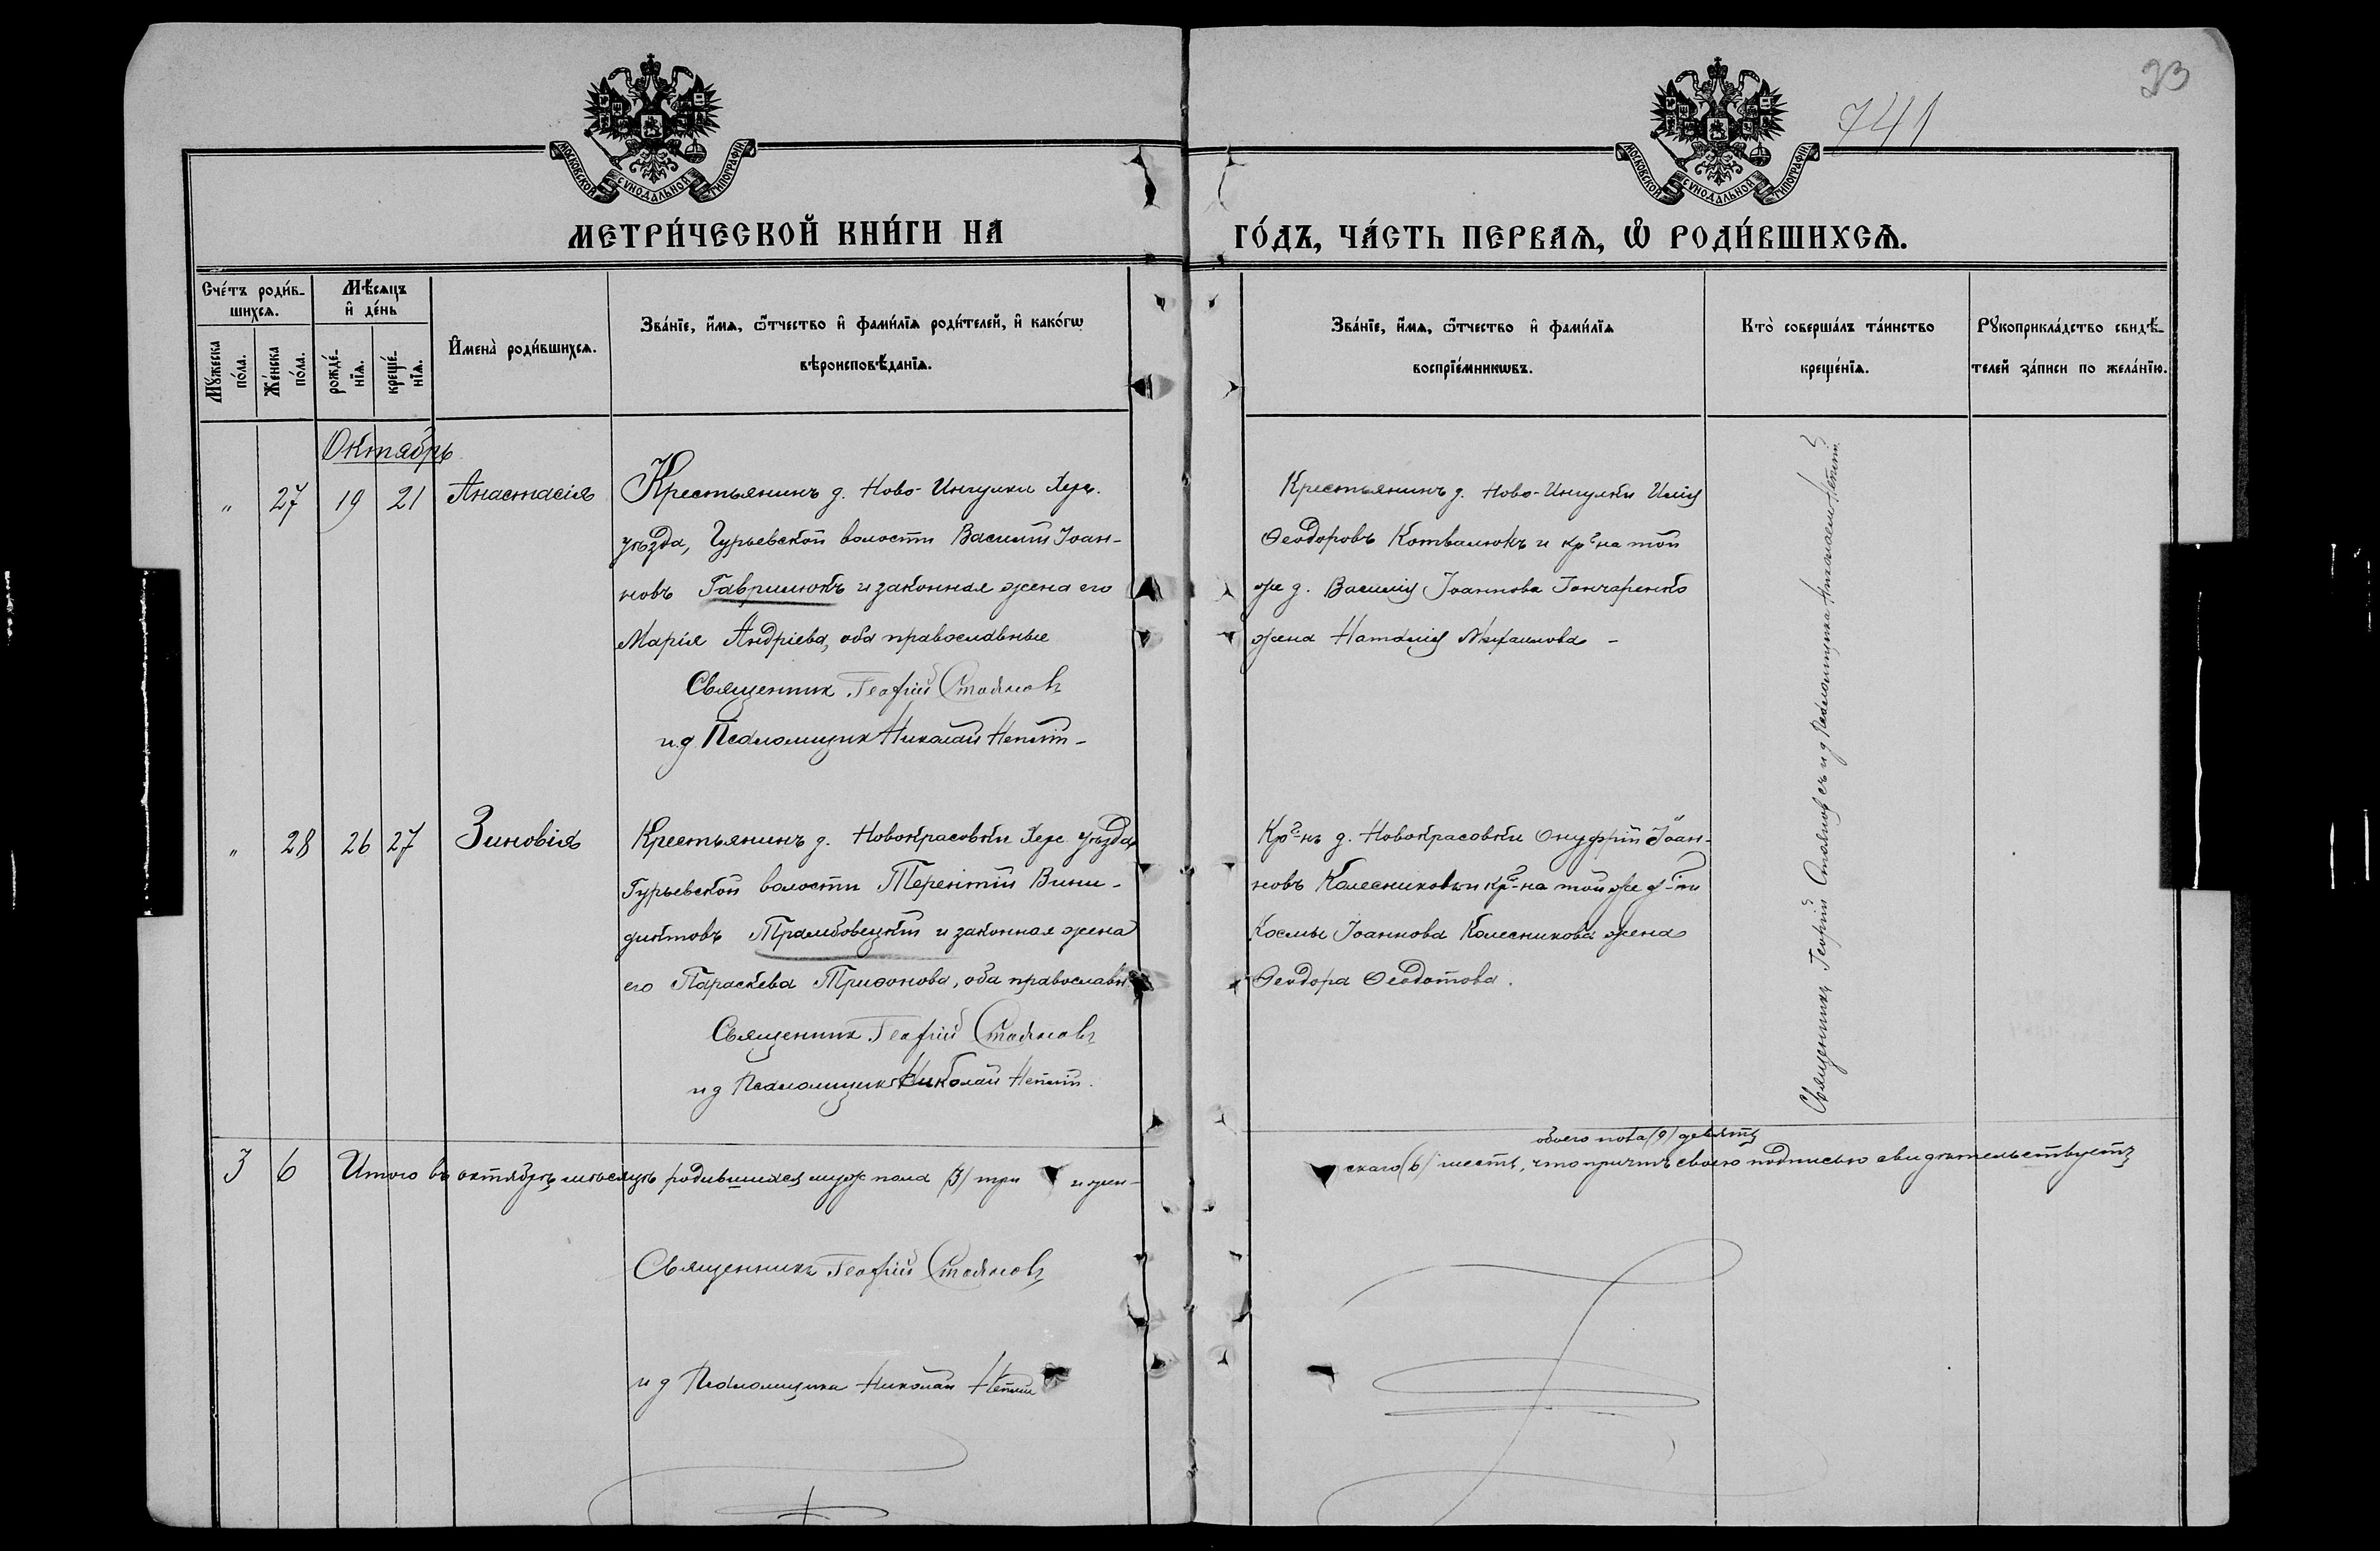 23
741
МОСКОВСКОЙ СѴНОДАЛЬНОЙ ТИПОГРАФІИ
МОСКОВСКОЙ СѴНОДАЛЬНОЙ ТИПОГРАФІИ
МЕТРИ́ЧЕСКОЙ КНИ́ГИ НА
ГО́ДЪ, ЧА́СТЬ ПЕРВАѦ, Ѽ РОДИ́ВШИХСѦ.
Сче́тъ роди́в-
шихсѧ.
Мꙋ́жеска
по́ла.
Же́нска
по́ла.
Мѣ́сѧцъ
и҆ де́нь
рожде́-
нїѧ.
креще́-
нїѧ.
И҆мена̀ роди́вшихсѧ.
Зва́нїе, и҆́мѧ, ѻ҆́тчество и҆ фами́лїѧ роди́телей, и҆ како́гѡ
вѣроисповѣ́данїѧ.
Зва́нїе, и҆́мѧ, ѻ҆́тчество и҆ фами́лїѧ
воспрїе́мникѡвъ.
Кто̀ соверша́лъ та́инство
креще́нїѧ.
Рꙋкоприкла́дство свидѣ́-
телей за́писи по жела́нїю.
Октябрь
" 27 19 21 Анастасія
Крестьянинъ д. Ново-Ингулки Херс.
уѣзда, Гурьевской волости Василій Іоан-
новъ Гаврилюкъ и законная жена его
Марія Андріева, оба православные
Священник Георгій Стояновъ
и.д Псаломщик Николай
Крестьянинъ д. Ново-Ингулки Илія
Ѳеодоровъ Котвалюкъ и кр-на той
же д. Василія Іоаннова Гончаренко
жена Наталія Михаилова -
" 28 26 27 Зиновія
Крестьянинъ д. Новокрасовки Херс. уѣзда
Гурьевской волости Терентій Вини-
диктовъ Трамбовецкій и законная жена
его Параскева Триѳонова, оба православн
Священник Георгій Стояновъ
и д Псаломщик Николай
Кр-нъ д. Новокрасовки Онуфрій Іоан-
новъ Колесниковъ и кр-на той же д-ни
Космы Іоаннова Колесникова жена
Ѳеодора Ѳеодотова.
Священникъ Георгій Стояновъ съ и д Псаломщика Николаем
3 6 Итого въ октябрѣ мѣсяцѣ родившихся муж пола (3) три и жен-
обоего пола (9) девять
скаго (6) шесть, что причтъ своею подписью свидѣтельствуетъ
Священникъ Георгій Стояновъ
и д Псаломщика Николай